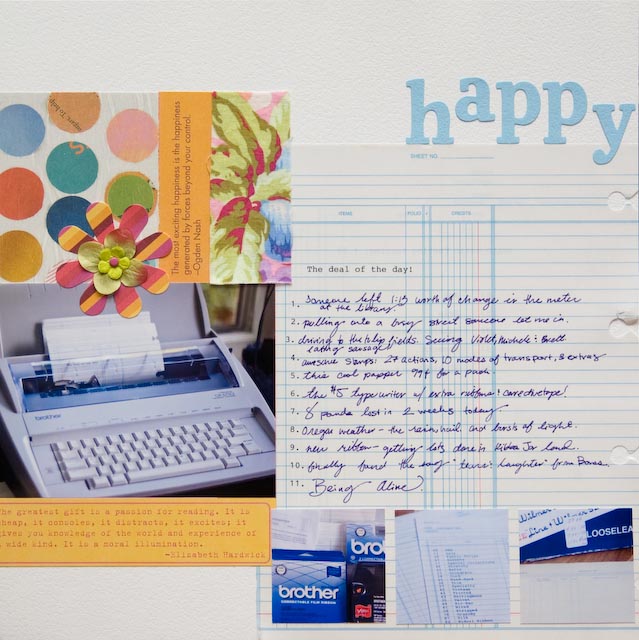 happy
The most exciting happiness is the happiness
generated by forces beyond your control.
~Ogden Nash
SHEET NO.
ITEMS FOLIO CREDITS
The deal of the day!
1. Someone left 1:15 worth of change in the meter
at the library.
2. pulling onto a busy street someone let me in.
3. driving to the tulip fields. Seeing Violet, Michele & Brett
eating sausage
4. awesome stamps: 27 actions, 10 modes of transport, 8 extras
5. this cool papper 99¢ for a pack
6. the $5 typewriter w/ extra ribbons & correctortape!
7. 8 pounds lost in 2 weeks today
8. Oregon weather - the rain, hail and bursts of light.
9. new ribbon - getting lots done in Ribbon Jar land.
10. finally found the song "tears & laughter" from
11. Being Alive.
brother
The greatest gift is a passion for reading. It is
cheap, it consoles, it distracts, it excites; it
gives you knowledge of the world and experience of
a wide kind. It is a moral illumination.
-Elizabeth Hardwick
brother
CORRECTABLE FILM RIBBON
bro
LOOSELEA